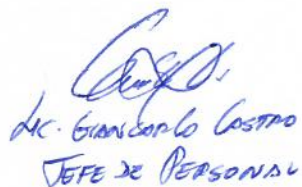 Lic. GIANCARLO CASTRO
JEFE DE PERSONAL